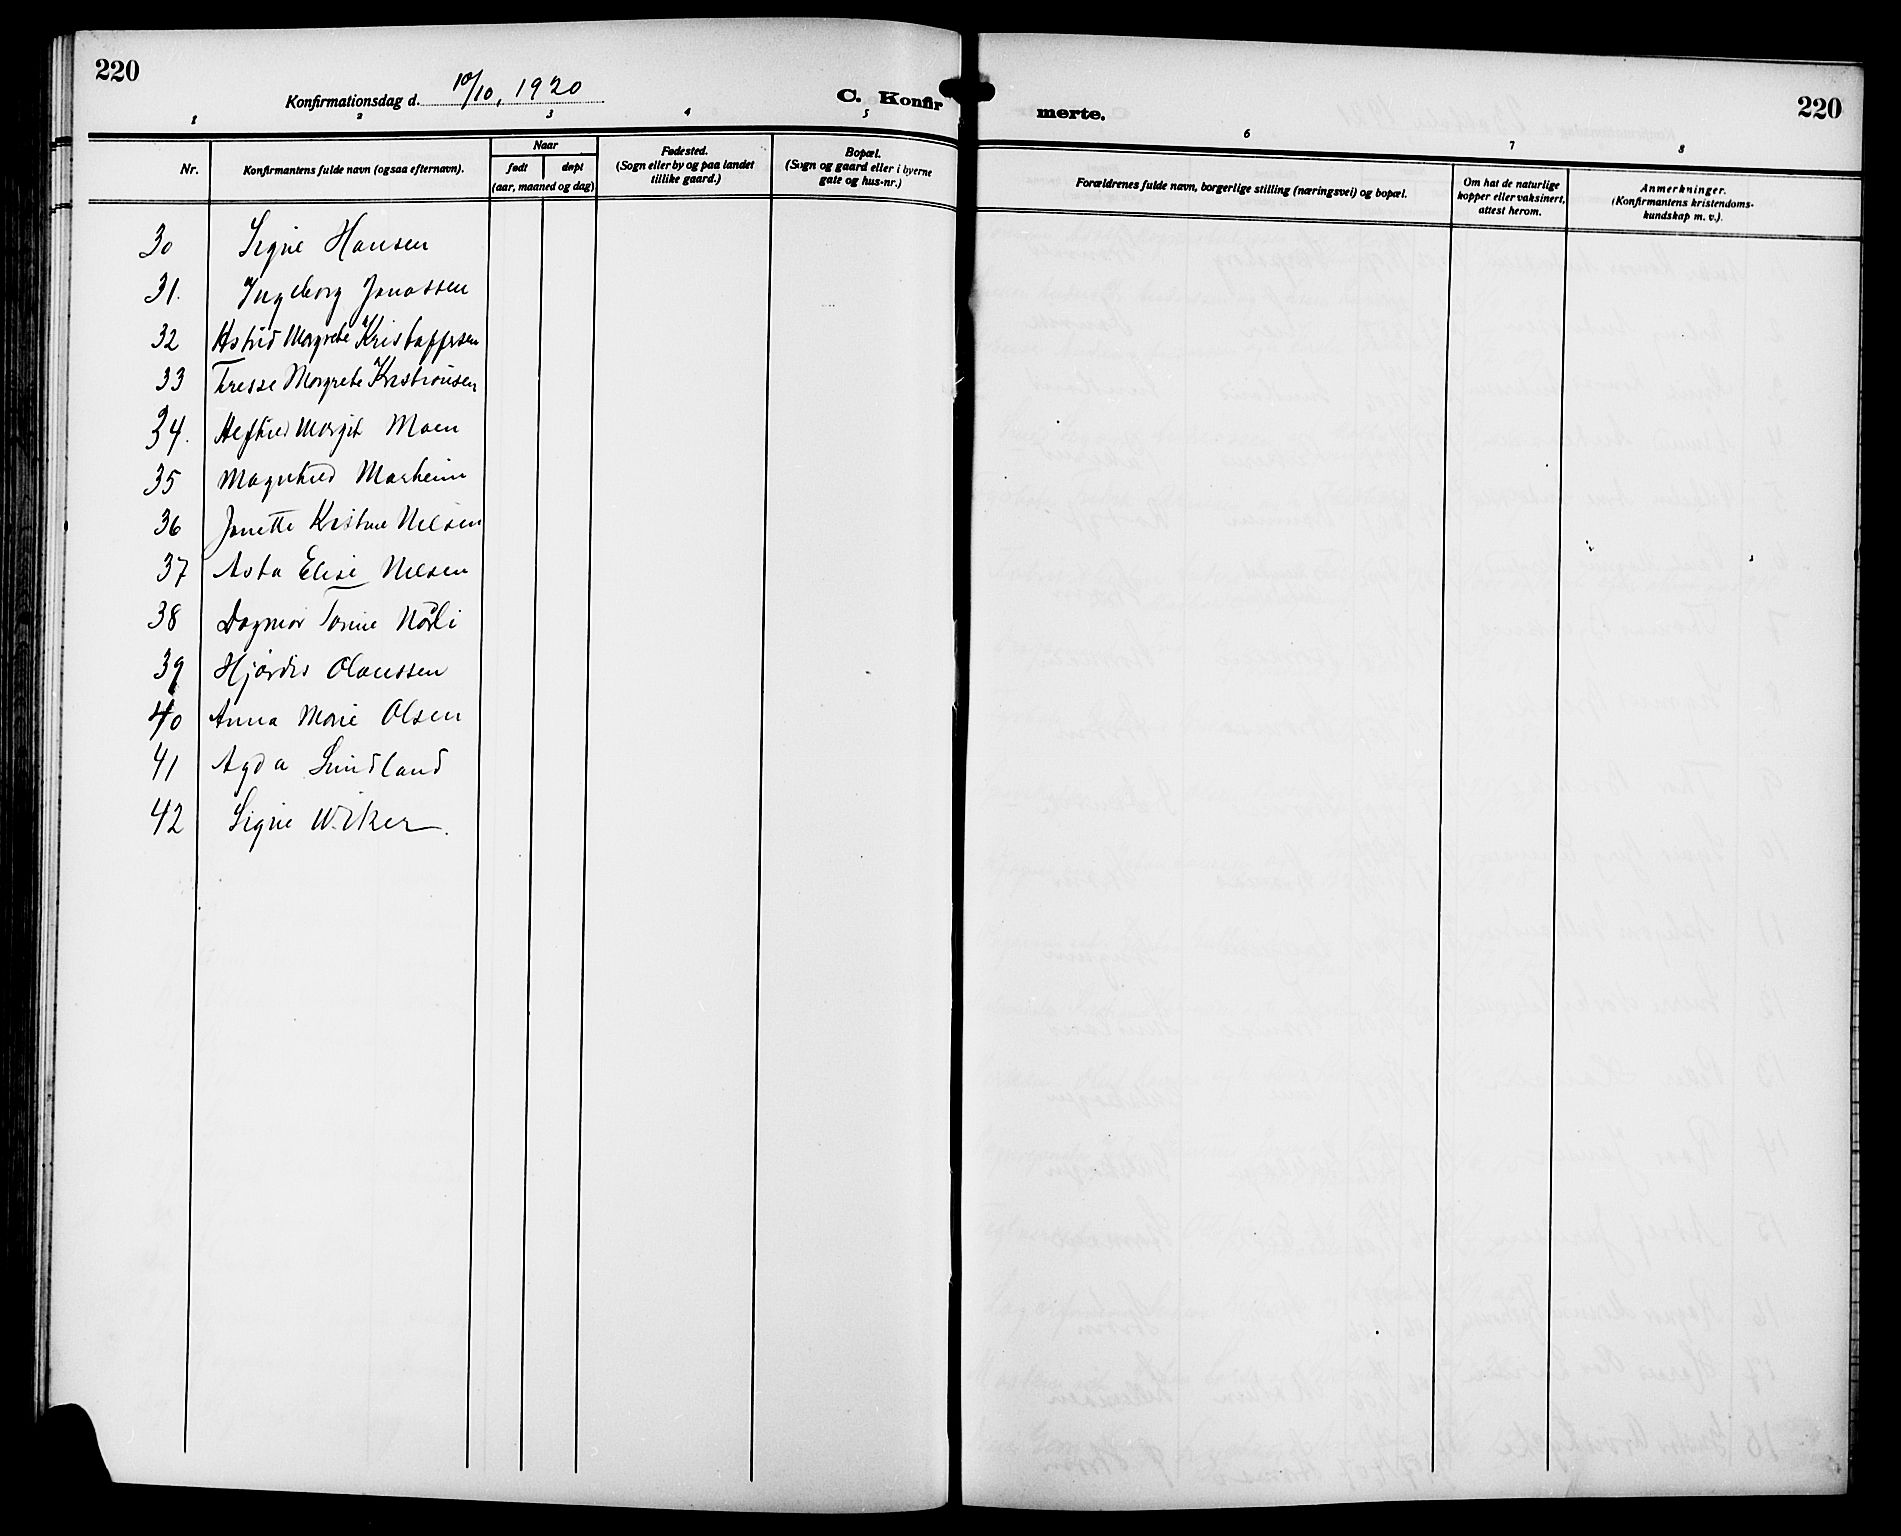 220
Konfirmationsdag d. 10/10, 1920
C. Konfirmerte.
220
1 2 3 4 5 6 7 8
Nr.
Konfirmantens fulde navn (ogsaa efternavn).
Naar
født døpt
(aar, maaned og dag)
Fødested.
(Sogn eller by og paa landet
tillike gaard.)
Bopæl.
(Sogn og gaard eller i byerne
gate og hus-nr.)
Forældrenes fulde navn, borgerlige stilling (næringsvei) og bopæl.
Om hat de naturlige
kopper eller vaksinert,
attest herom.
Anmerkninger.
(Konfirmantens kristendoms-
kundskap m. v.).
30 Signe Hansen
31. Ingeborg Jonassen
32 Astrid Margrete Kristoffersen
33 Terese Margrete Kristiansen
34. Margit Moen
35 Magnhild Marheim
36 Jonette Kristine Nilsen
37 Asta Elise Nilsen
38 Dagmar Tomine Nørli
39 Hjørdis Olaussen
40 Anna Marie Olsen
41 Agda Sundland
42 Signe Wiker.